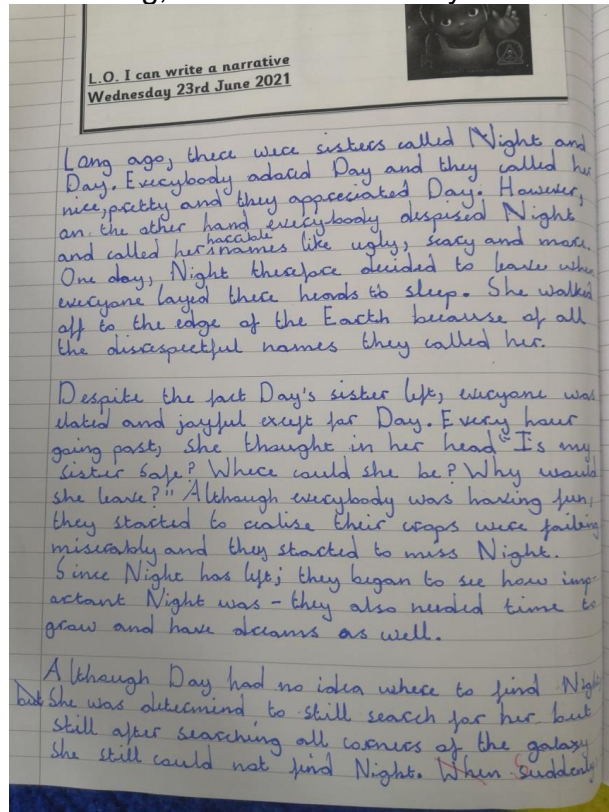 L.O. I can write a narrative
Wednesday 23rd June 2021
Long ago, there were sisters called Night and
Day. Everybody adored Day and they called her
nice, pretty and they appreciated Day. However,
on the other hand everybody despised Night
and called her horrible names like ugly, scary and more.
One day, Night therefore decided to leave when
everyone layed there heads to sleep. She walked
off to the edge of the Earth because of all
the disrespectful names they called her.
Despite the fact Day's sister left, everyone was
elated and joyful except for Day. Every hour
going past, she thought in her head "Is my
sister safe? Where could she be? Why would
she leave?" Although everybody was having fun,
they started to realise their crops were failing
miserably and they started to miss Night.
Since Night has left; they began to see how imp-
ortant Night was - they also needed time to
grow and have dreams as well.
Although Day had no idea where to find Night
but She was determind to still search for her but
still after searching all corners of the galaxy
She still could not find Night. When Suddenly